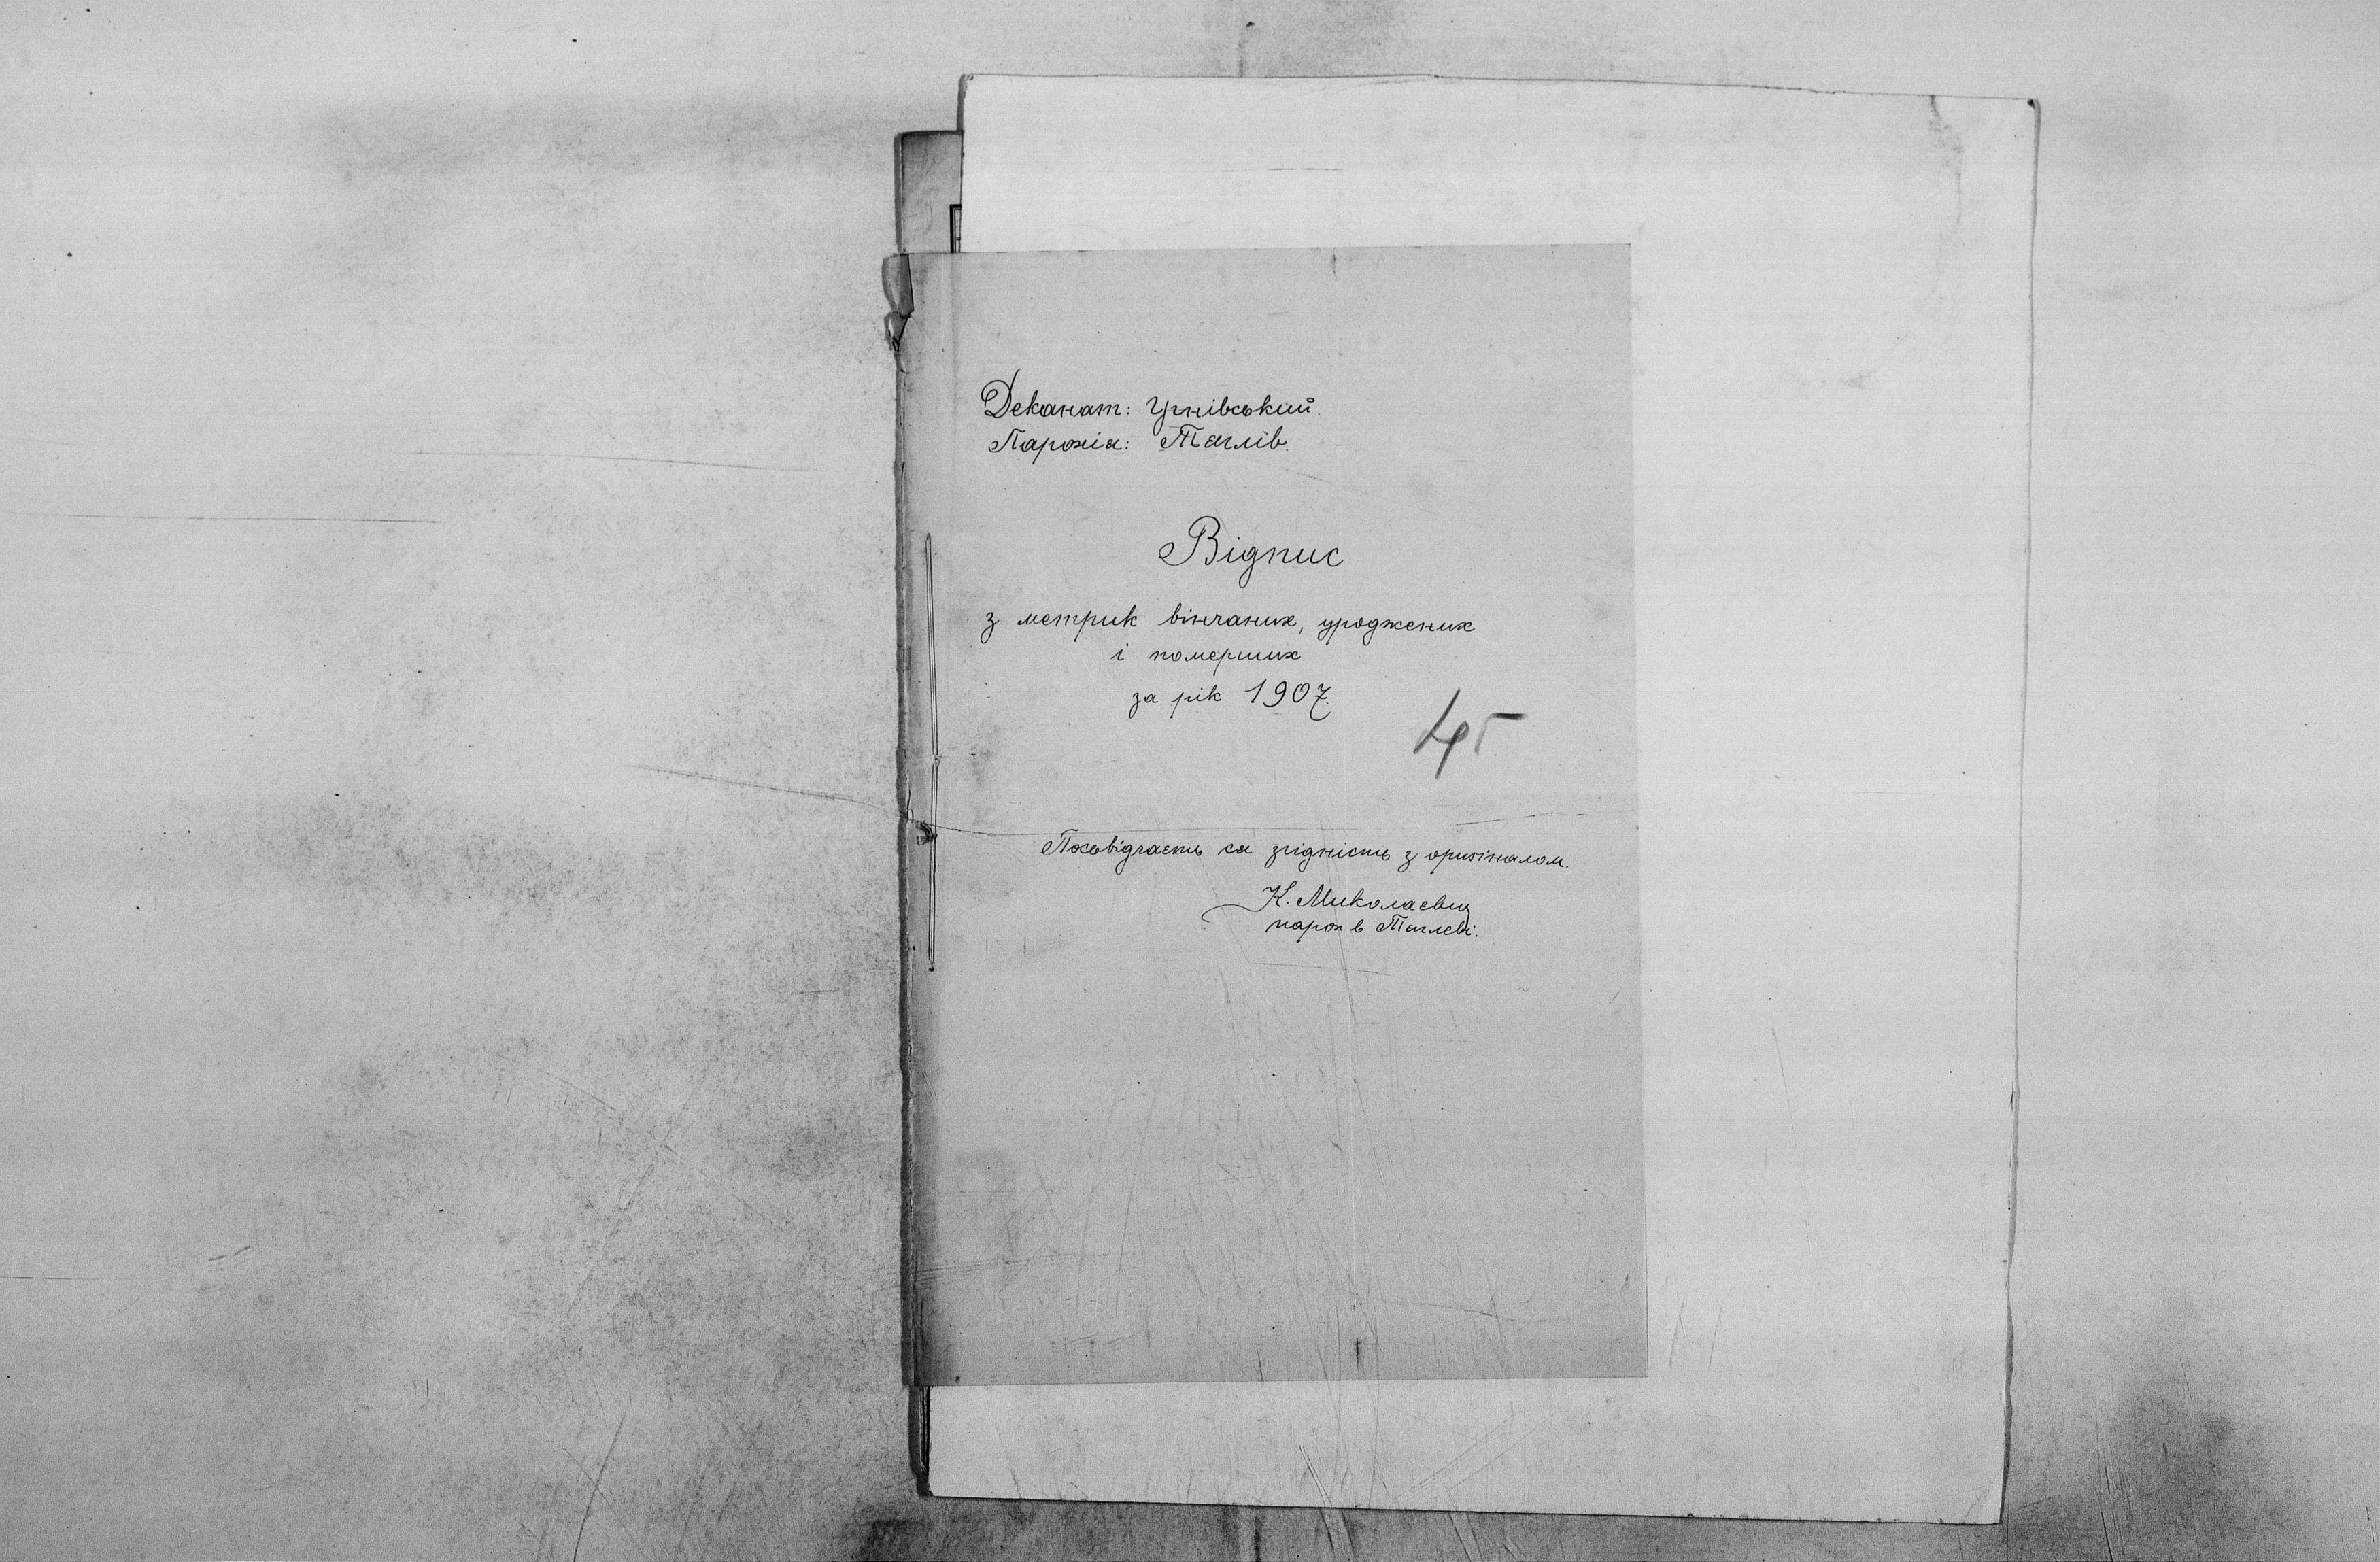 Деканат: Угнівський.
Парохія: Тяглів.
Відпис
з метрик вінчаних, уроджених
і померших
за рік 1907.
45
Посвідчаєть ся згідність з оригіналом.
К. Миколаєвич
парох в Тяглеві.